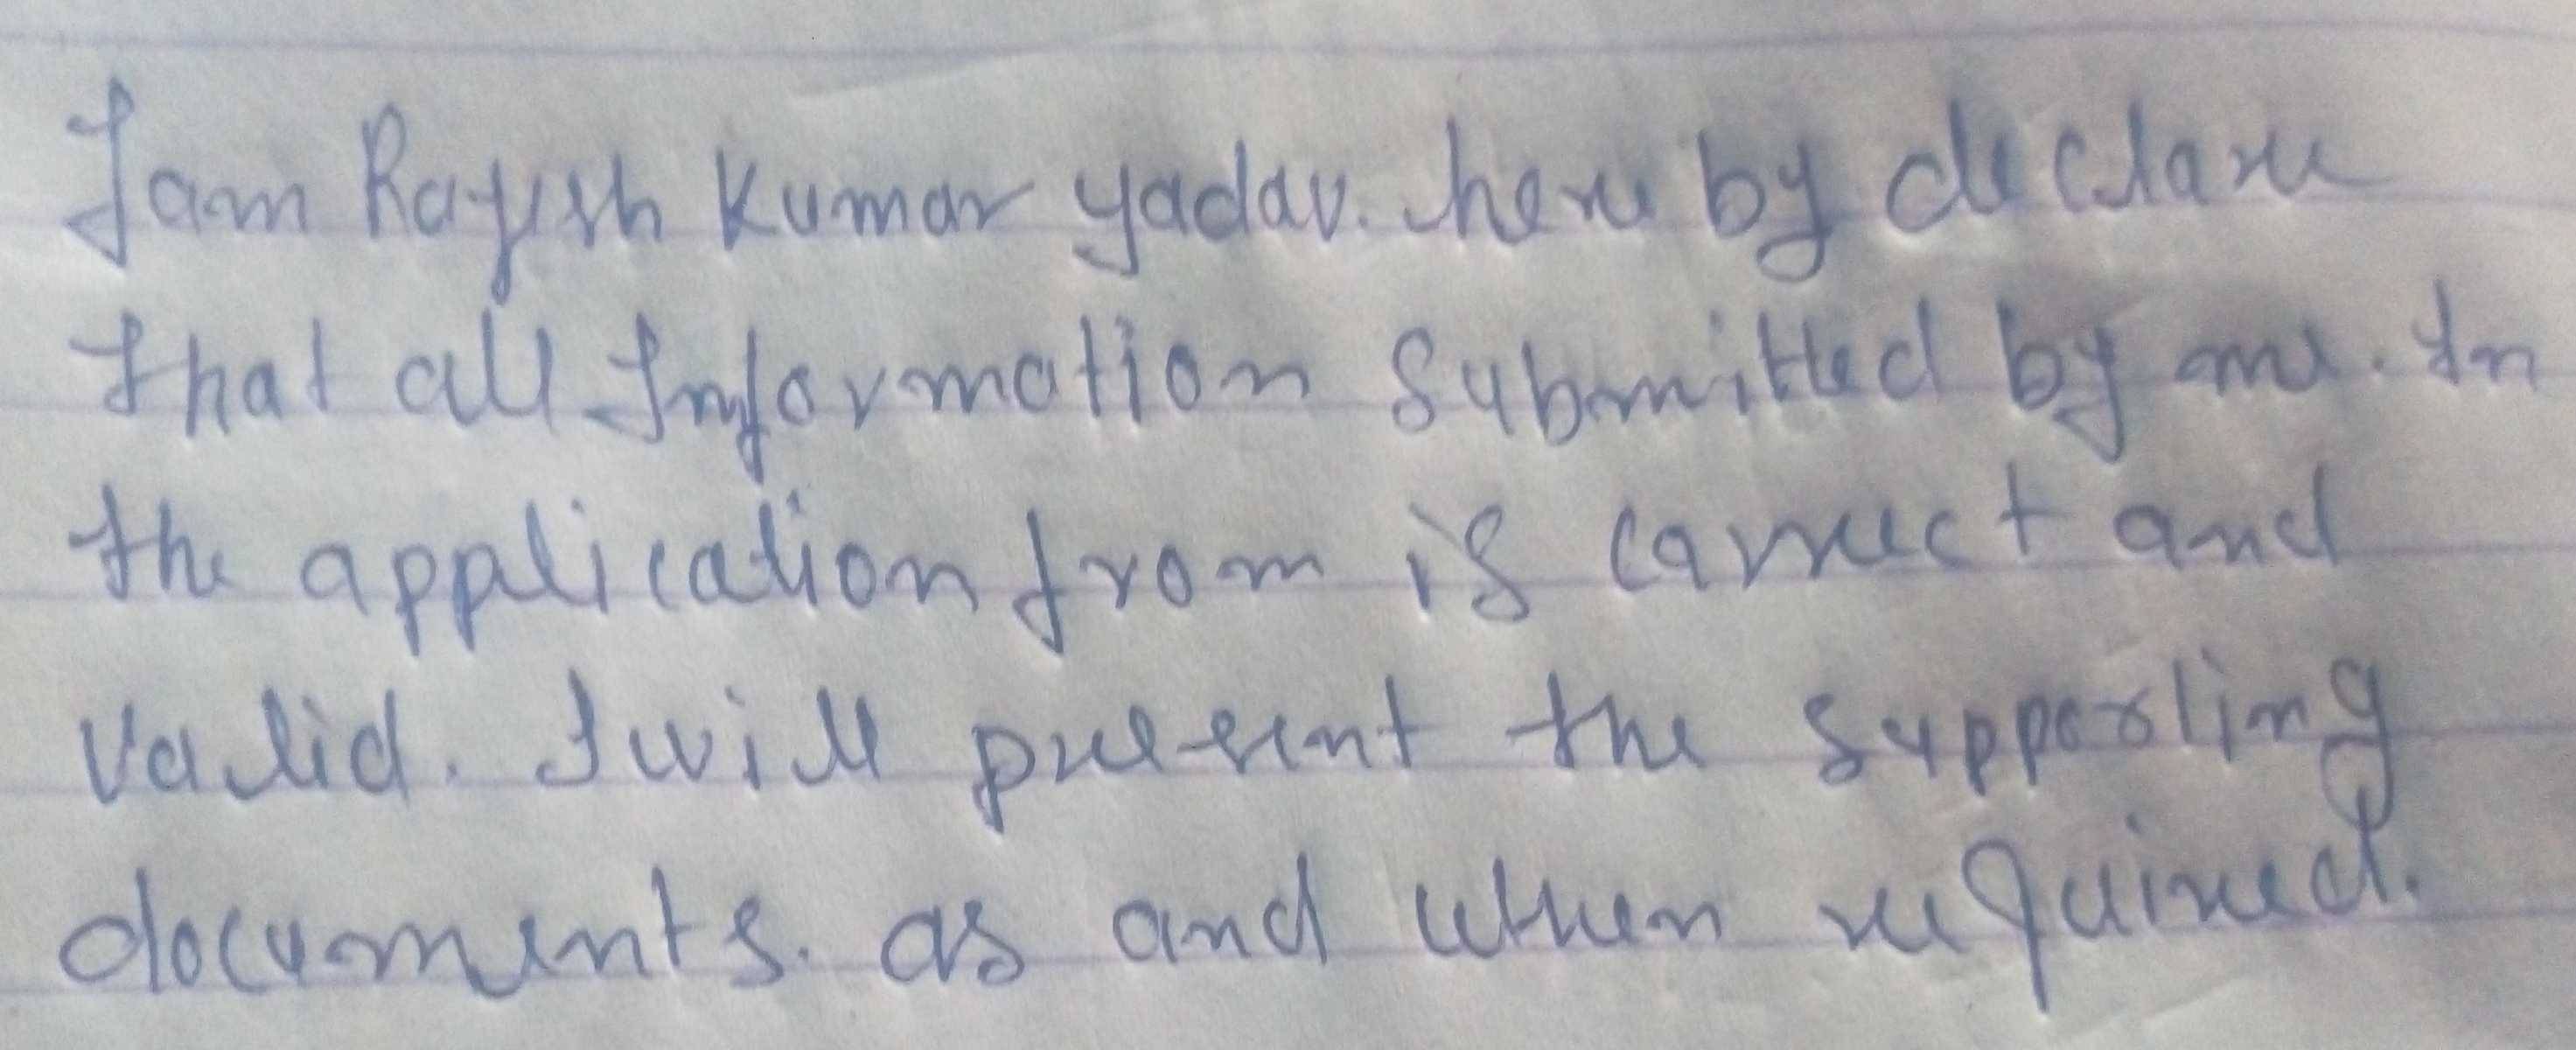 I am Rajesh Kumar yadav. here by declare
that all Information Submitted by me. In
the application from is correct and
valid. I will present the supporting
documents. as and when required.